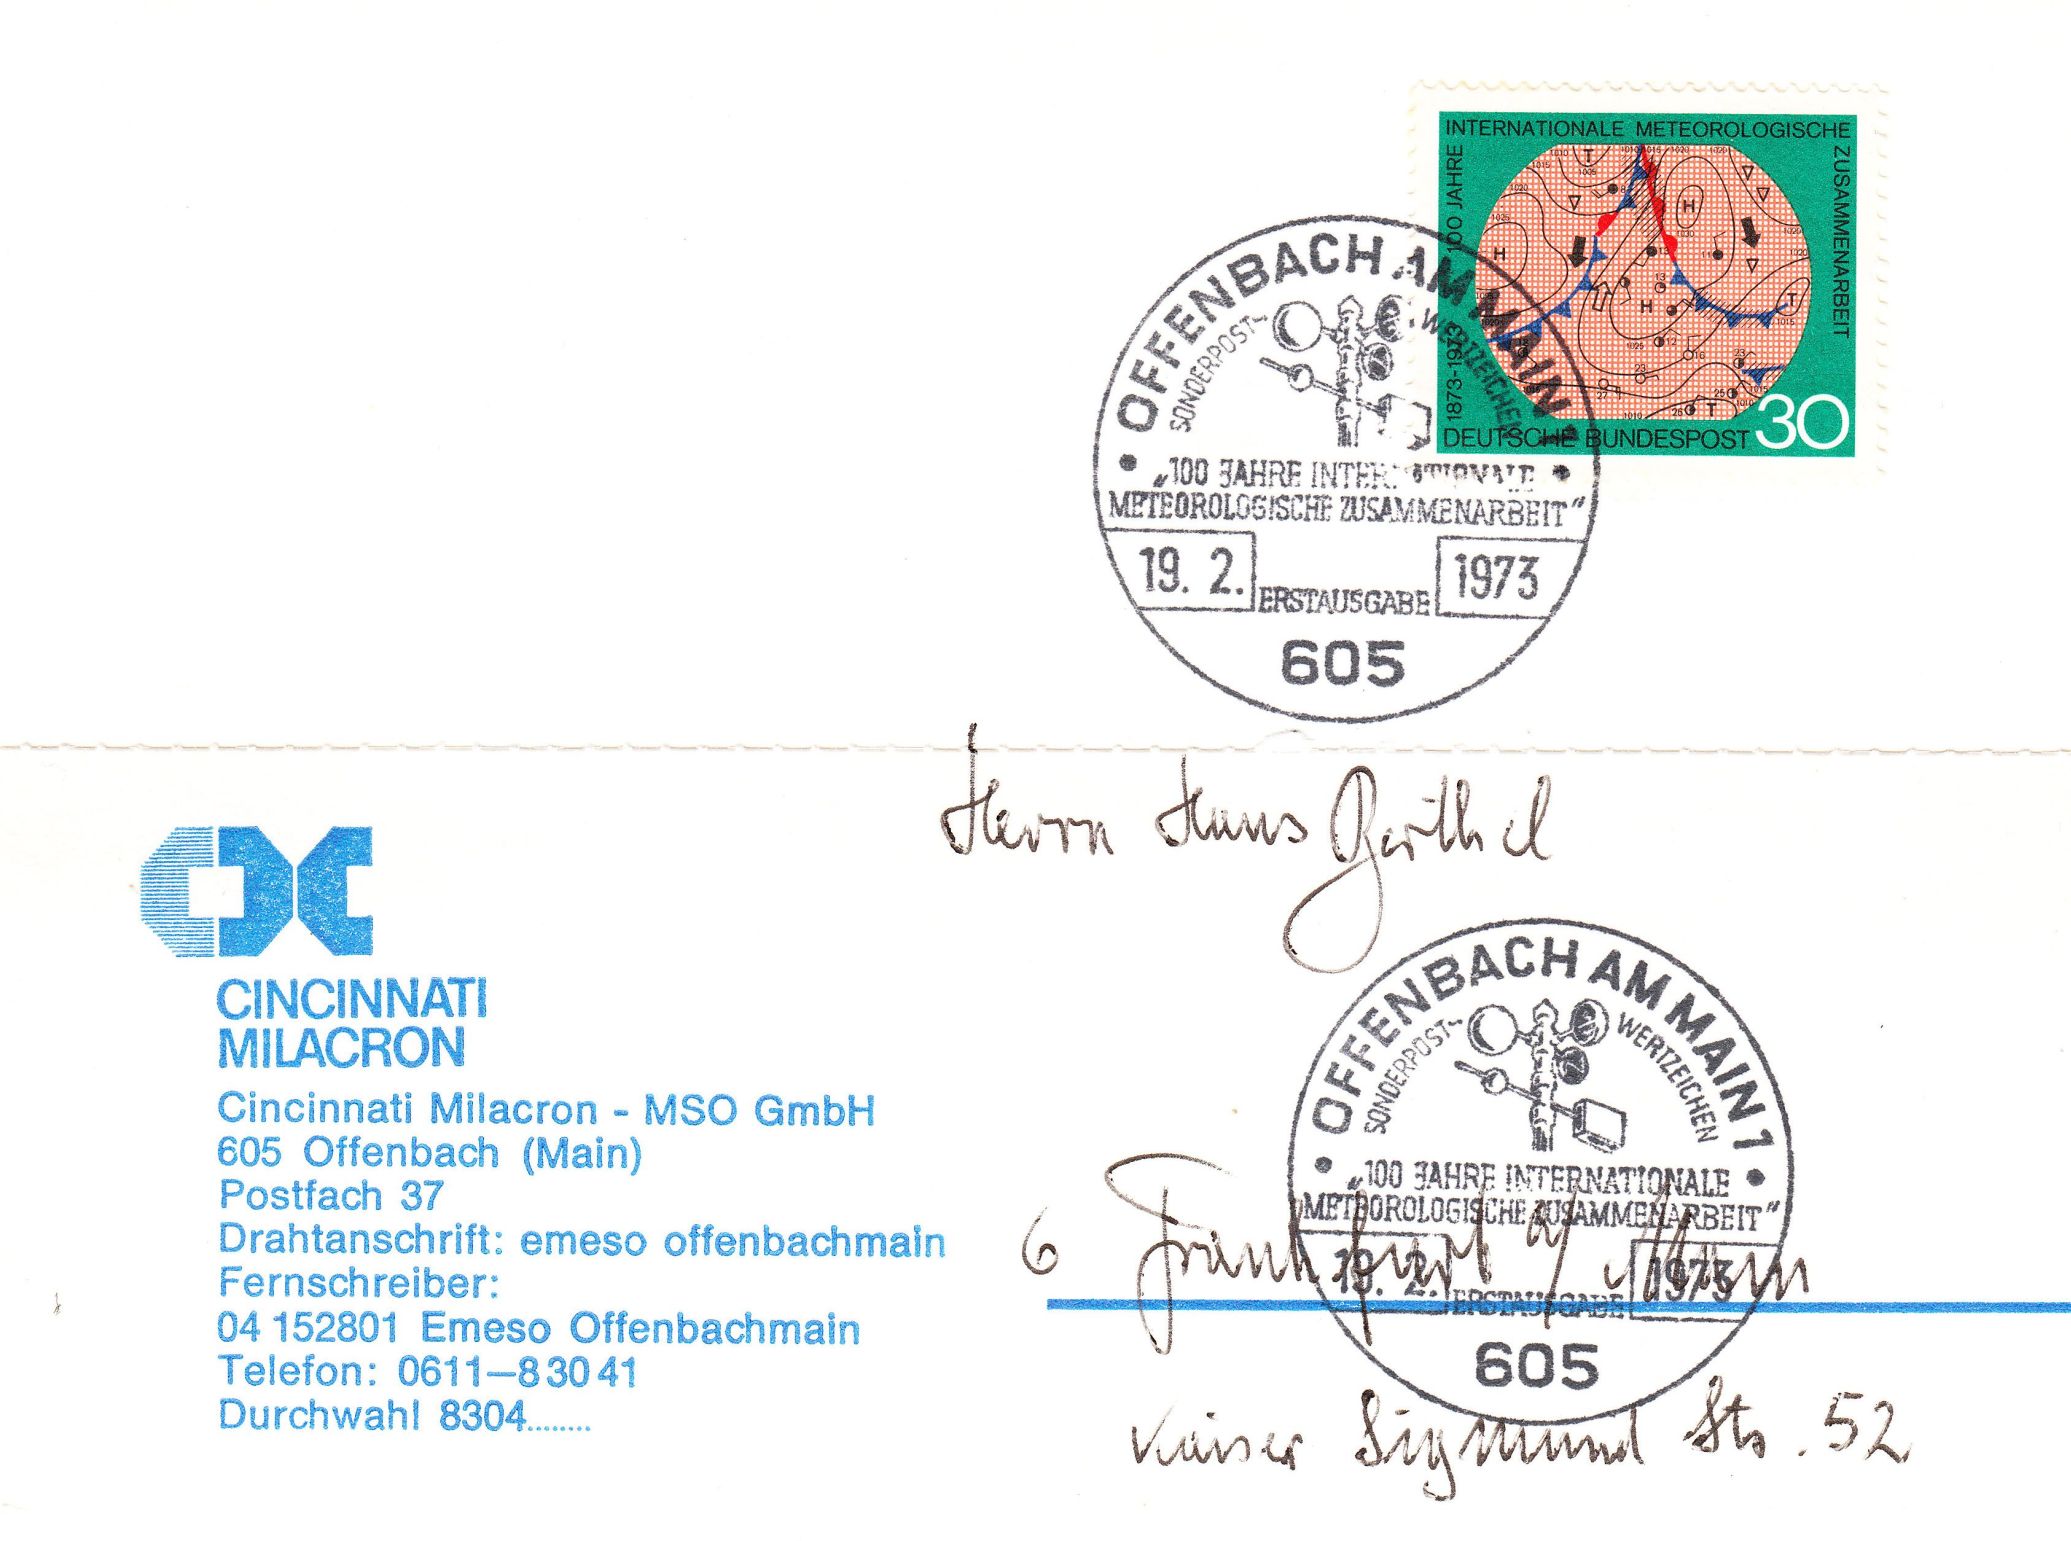 100 JAHRE INTERNATIONALE METEOROLOGISCHE ZUSAMMENARBEIT
1873-1973
DEUTSCHE BUNDESPOST 30
OFFENBACH AM MAIN 1
SONDERPOST-WERTZEICHEN
„100 JAHRE INTERNATIONALE
METEOROLOGISCHE ZUSAMMENARBEIT“
19. 2. ERSTAUSGABE 1973
605
Herrn Hans Barthel
CINCINNATI
MILACRON
Cincinnati Milacron - MSO GmbH
605 Offenbach (Main)
Postfach 37
Drahtanschrift: emeso offenbachmain
Fernschreiber:
04 152801 Emeso Offenbachmain
Telefon: 0611–83041
Durchwahl 8304........
OFFENBACH AM MAIN 1
SONDERPOST-WERTZEICHEN
„100 JAHRE INTERNATIONALE
METEOROLOGISCHE ZUSAMMENARBEIT“
19. 2. ERSTAUSGABE 1973
605
6 Frankfurt a/Main
Kaiser Sigmund Str. 52